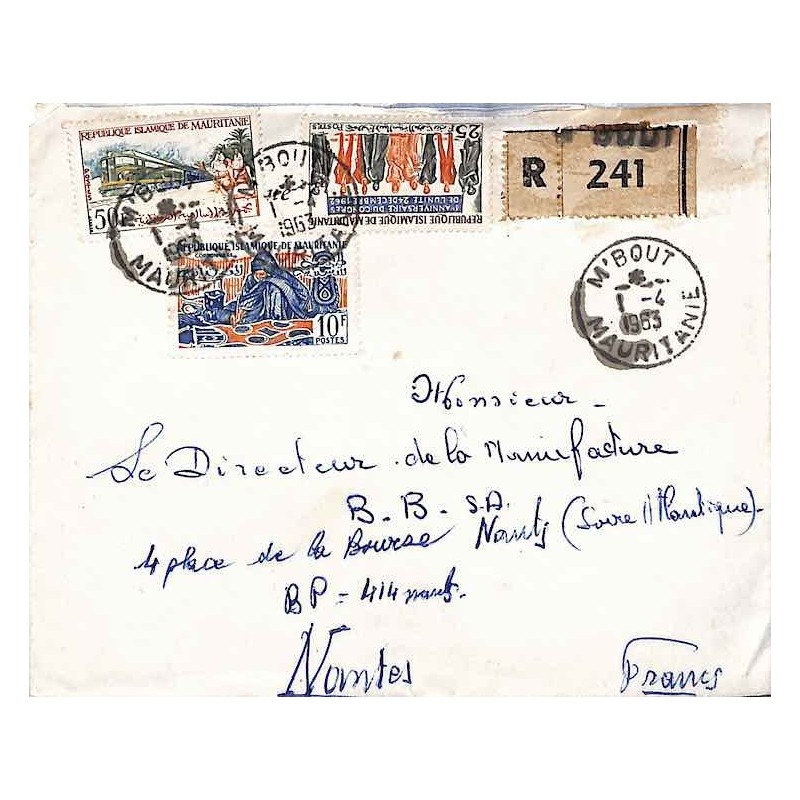 REPUBLIQUE ISLAMIQUE DE MAURITANIE
50F
25F
POSTES
1er ANNIVERSAIRE DU CONGRES
DE L'UNITE 24 DECEMBRE 1962
REPUBLIQUE ISLAMIQUE DE MAURITANIE
R 241
M'BOUT
1-4
1963
MAURITANIE
M'BOUT
1-4
1963
MAURITANIE
M'BOUT
1-4
1963
MAURITANIE
REPUBLIQUE ISLAMIQUE DE MAURITANIE
10F
POSTES
Monsieur -
Le Directeur de la Manufacture
B. B - S.A.
4 place de la Bourse Nantes (Loire Atlantique) -
BP - 414 nantes.
Nantes France